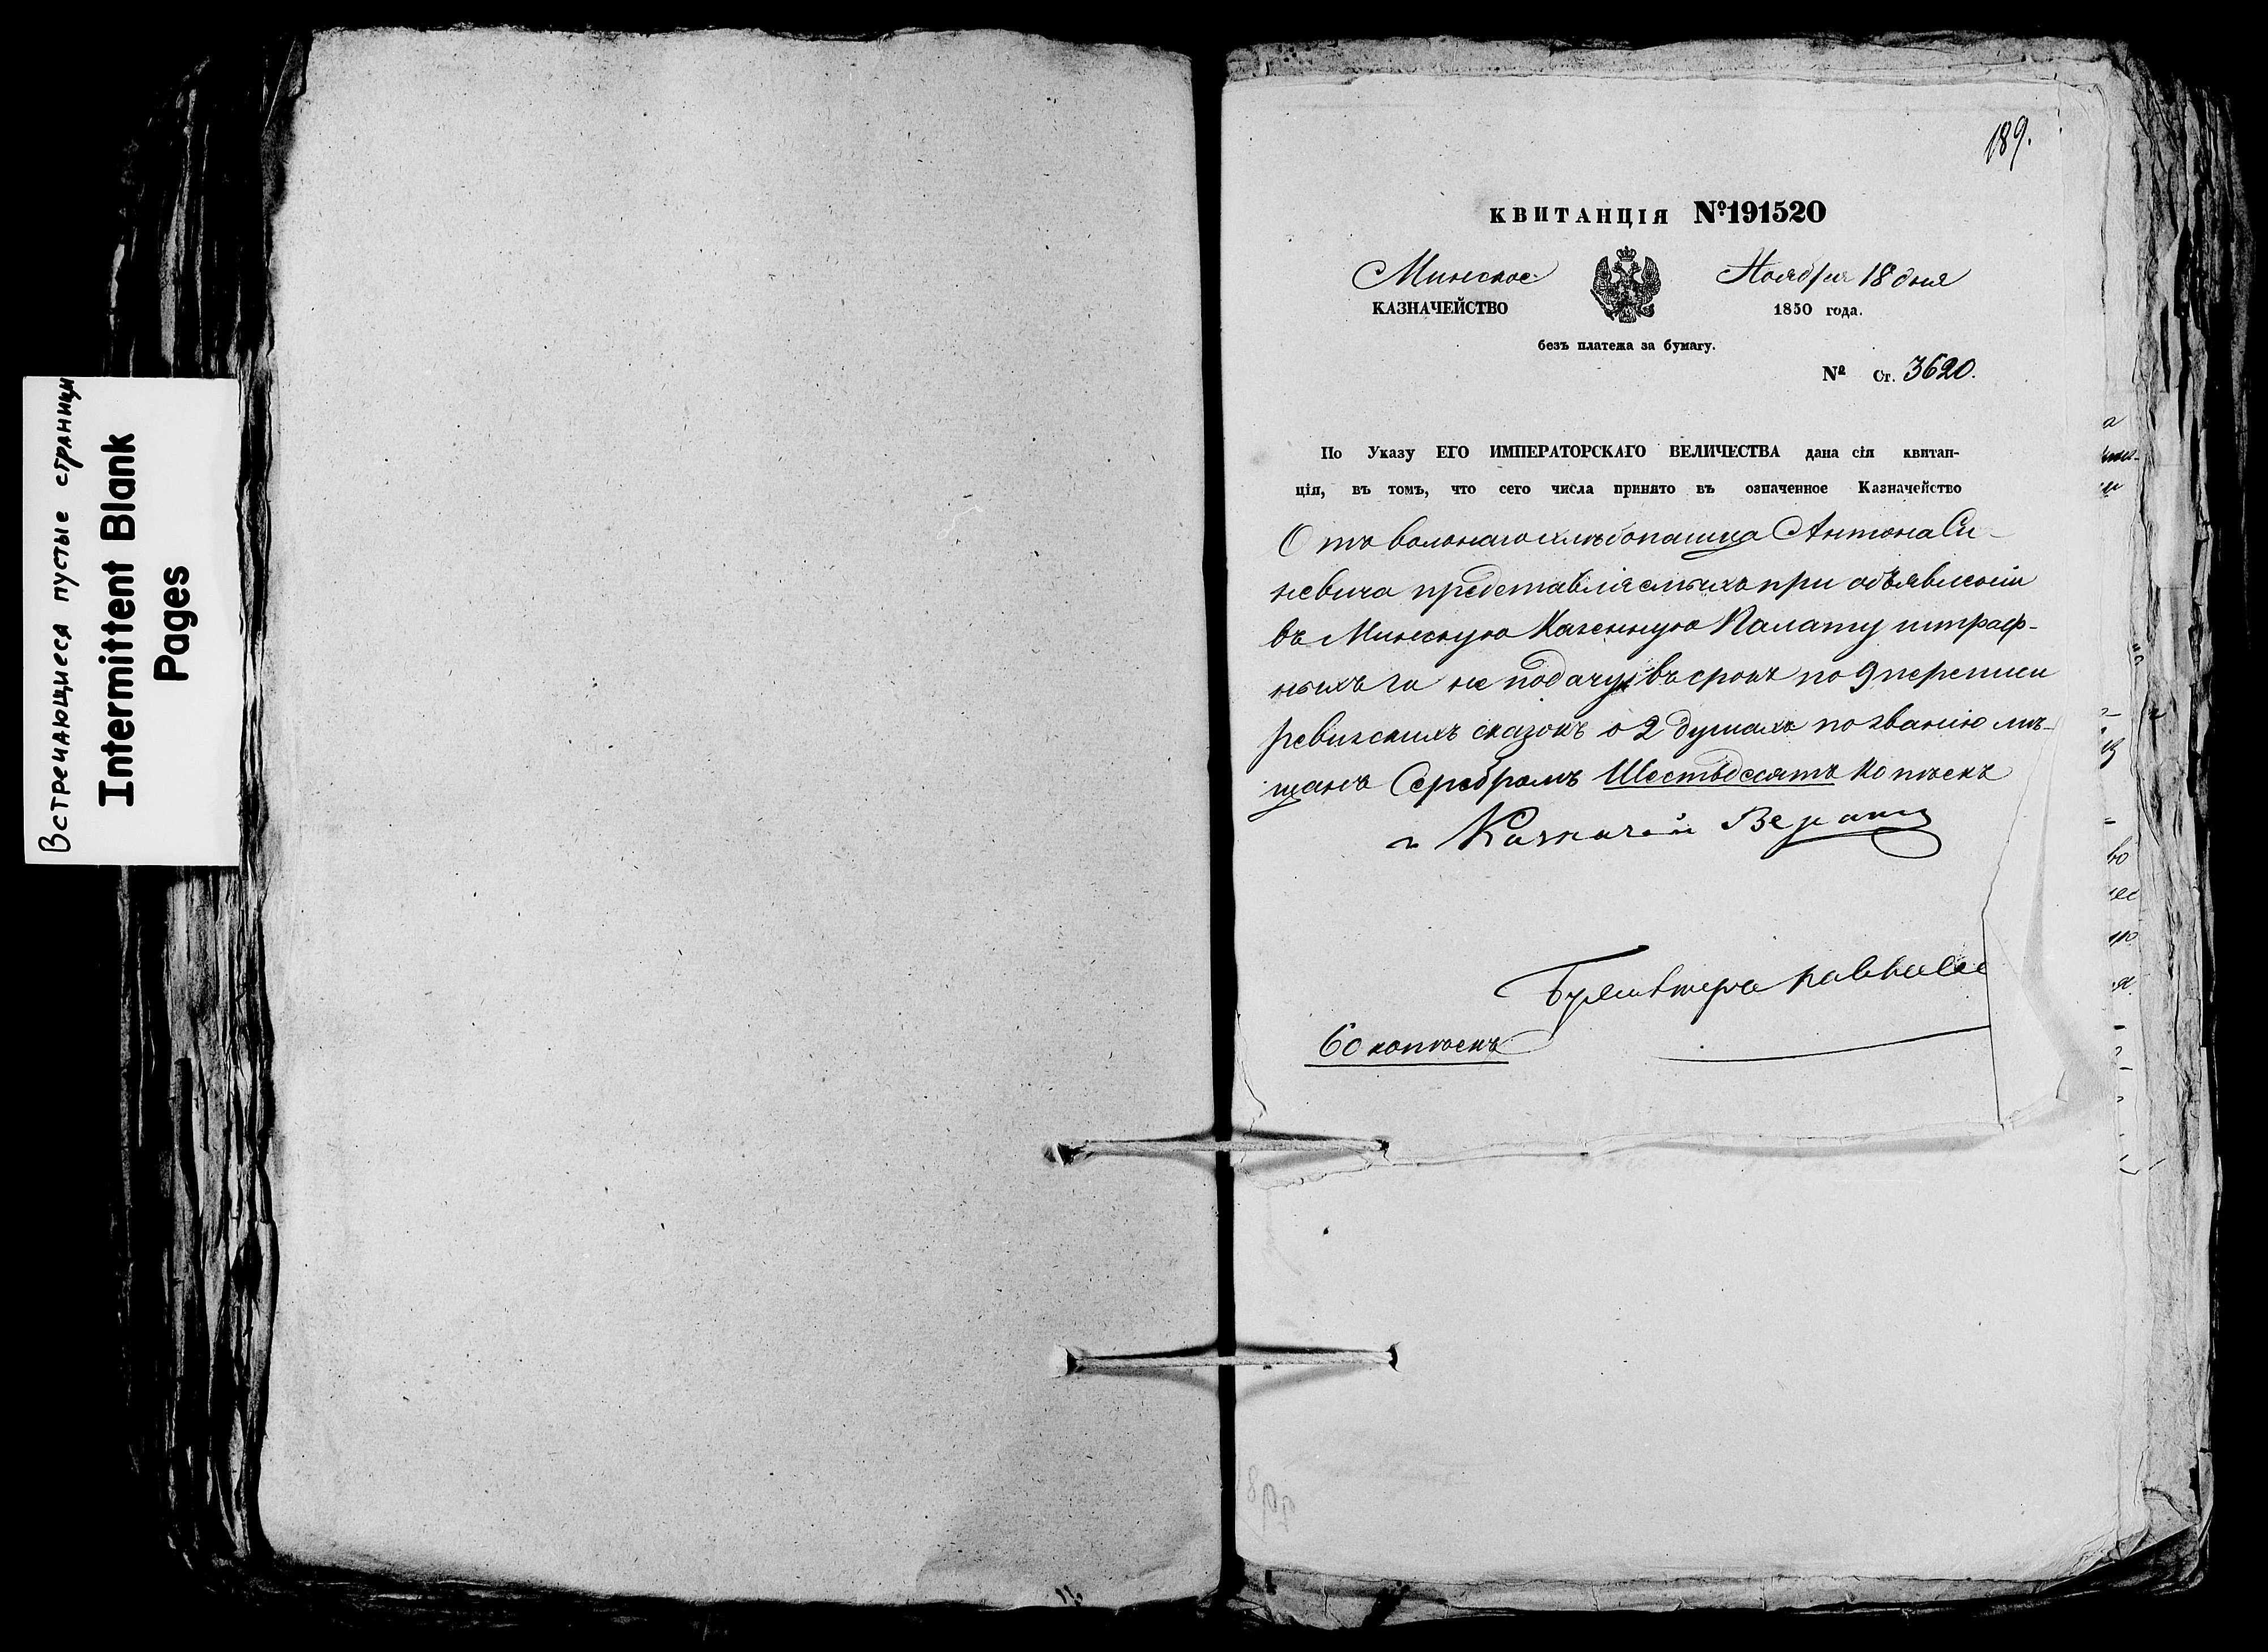 Встречающиеся пустые страницы
Intermittent Blank
Pages
189.
КВИТАНЦІЯ №191520
Минское Ноября 18 дня
КАЗНАЧЕЙСТВО 1850 года.
безъ платежа за бумагу.
№ Ст. 3620.
По Указу ЕГО ИМПЕРАТОРСКАГО ВЕЛИЧЕСТВА дана сія квитан-
ція, въ томъ, что сего числа принято въ означенное Казначейство
Отъ вольнаго хлѣбопашца Антона Си-
невича представляемыхъ при объявленіи
въ Минскую Казенную Палату штраф-
ныхъ за не подачу въ срокъ по 9 переписи
ревизскихъ сказокъ о 2 душахъ по званію мѣ-
щанъ Серебромъ Шестьдесятъ копѣекъ
Казначей
Бухгалтера
60 копѣекъ